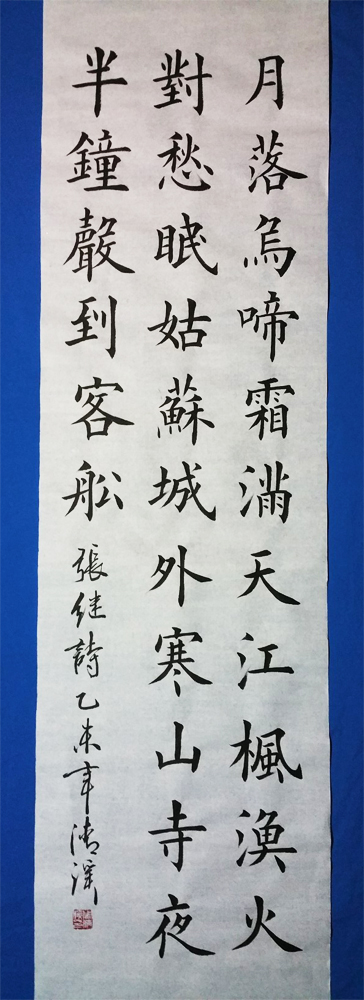 月落烏啼霜滿天江楓漁火
對愁眠姑蘇城外寒山寺夜
半鐘聲到客船
張继詩乙未年清溪